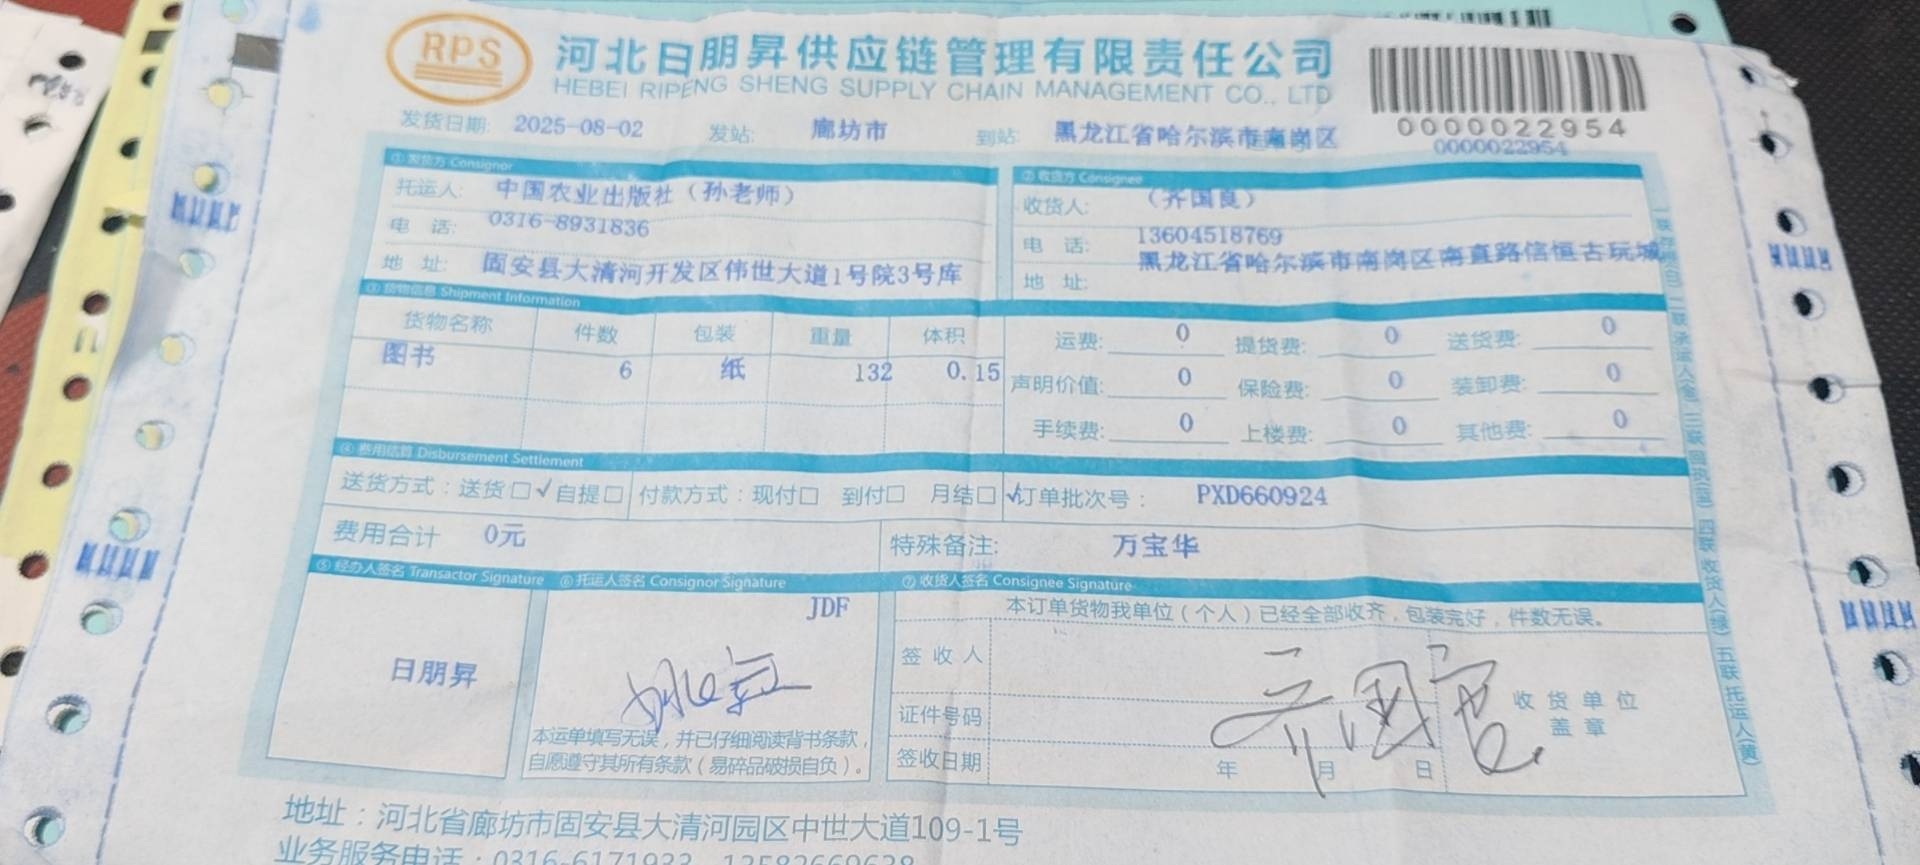 RPS
河北日朋昇供应链管理有限责任公司
HEBEI RIPENG SHENG SUPPLY CHAIN MANAGEMENT CO., LTD
0000022954
0000022954
发货日期: 2025-08-02 发站: 廊坊市 到站: 黑龙江省哈尔滨市南岗区
① 发货方 Consignor ② 收货方 Consignee
托运人: 中国农业出版社（孙老师） 收货人: （齐国良）
电 话: 0316-8931836 电 话: 13604518769
地 址: 固安县大清河开发区伟世大道1号院3号库 地 址: 黑龙江省哈尔滨市南岗区南直路信恒古玩城
③ 货物信息 Shipment Information
货物名称 件数 包装 重量 体积 运费: 0 提货费: 0 送货费: 0
图书 6 纸 132 0.15 声明价值: 0 保险费: 0 装卸费: 0
手续费: 0 上楼费: 0 其他费: 0
④ 费用结算 Disbursement Settlement
送货方式：送货□√自提□ 付款方式：现付□ 到付□ 月结□√订单批次号： PXD660924
费用合计 0元 特殊备注: 万宝华
⑤ 经办人签名 Transactor Signature ⑥ 托运人签名 Consignor Signature ⑦ 收货人签名 Consignee Signature
JDF 本订单货物我单位（个人）已经全部收齐，包装完好，件数无误。
日朋昇 签 收 人 齐国良 收 货 单 位
盖 章
证件号码
本运单填写无误，并已仔细阅读背书条款，
自愿遵守其所有条款（易碎品破损自负）。 签收日期 年 月 日
地址：河北省廊坊市固安县大清河园区中世大道109-1号
业务服务电话：0316-6171933